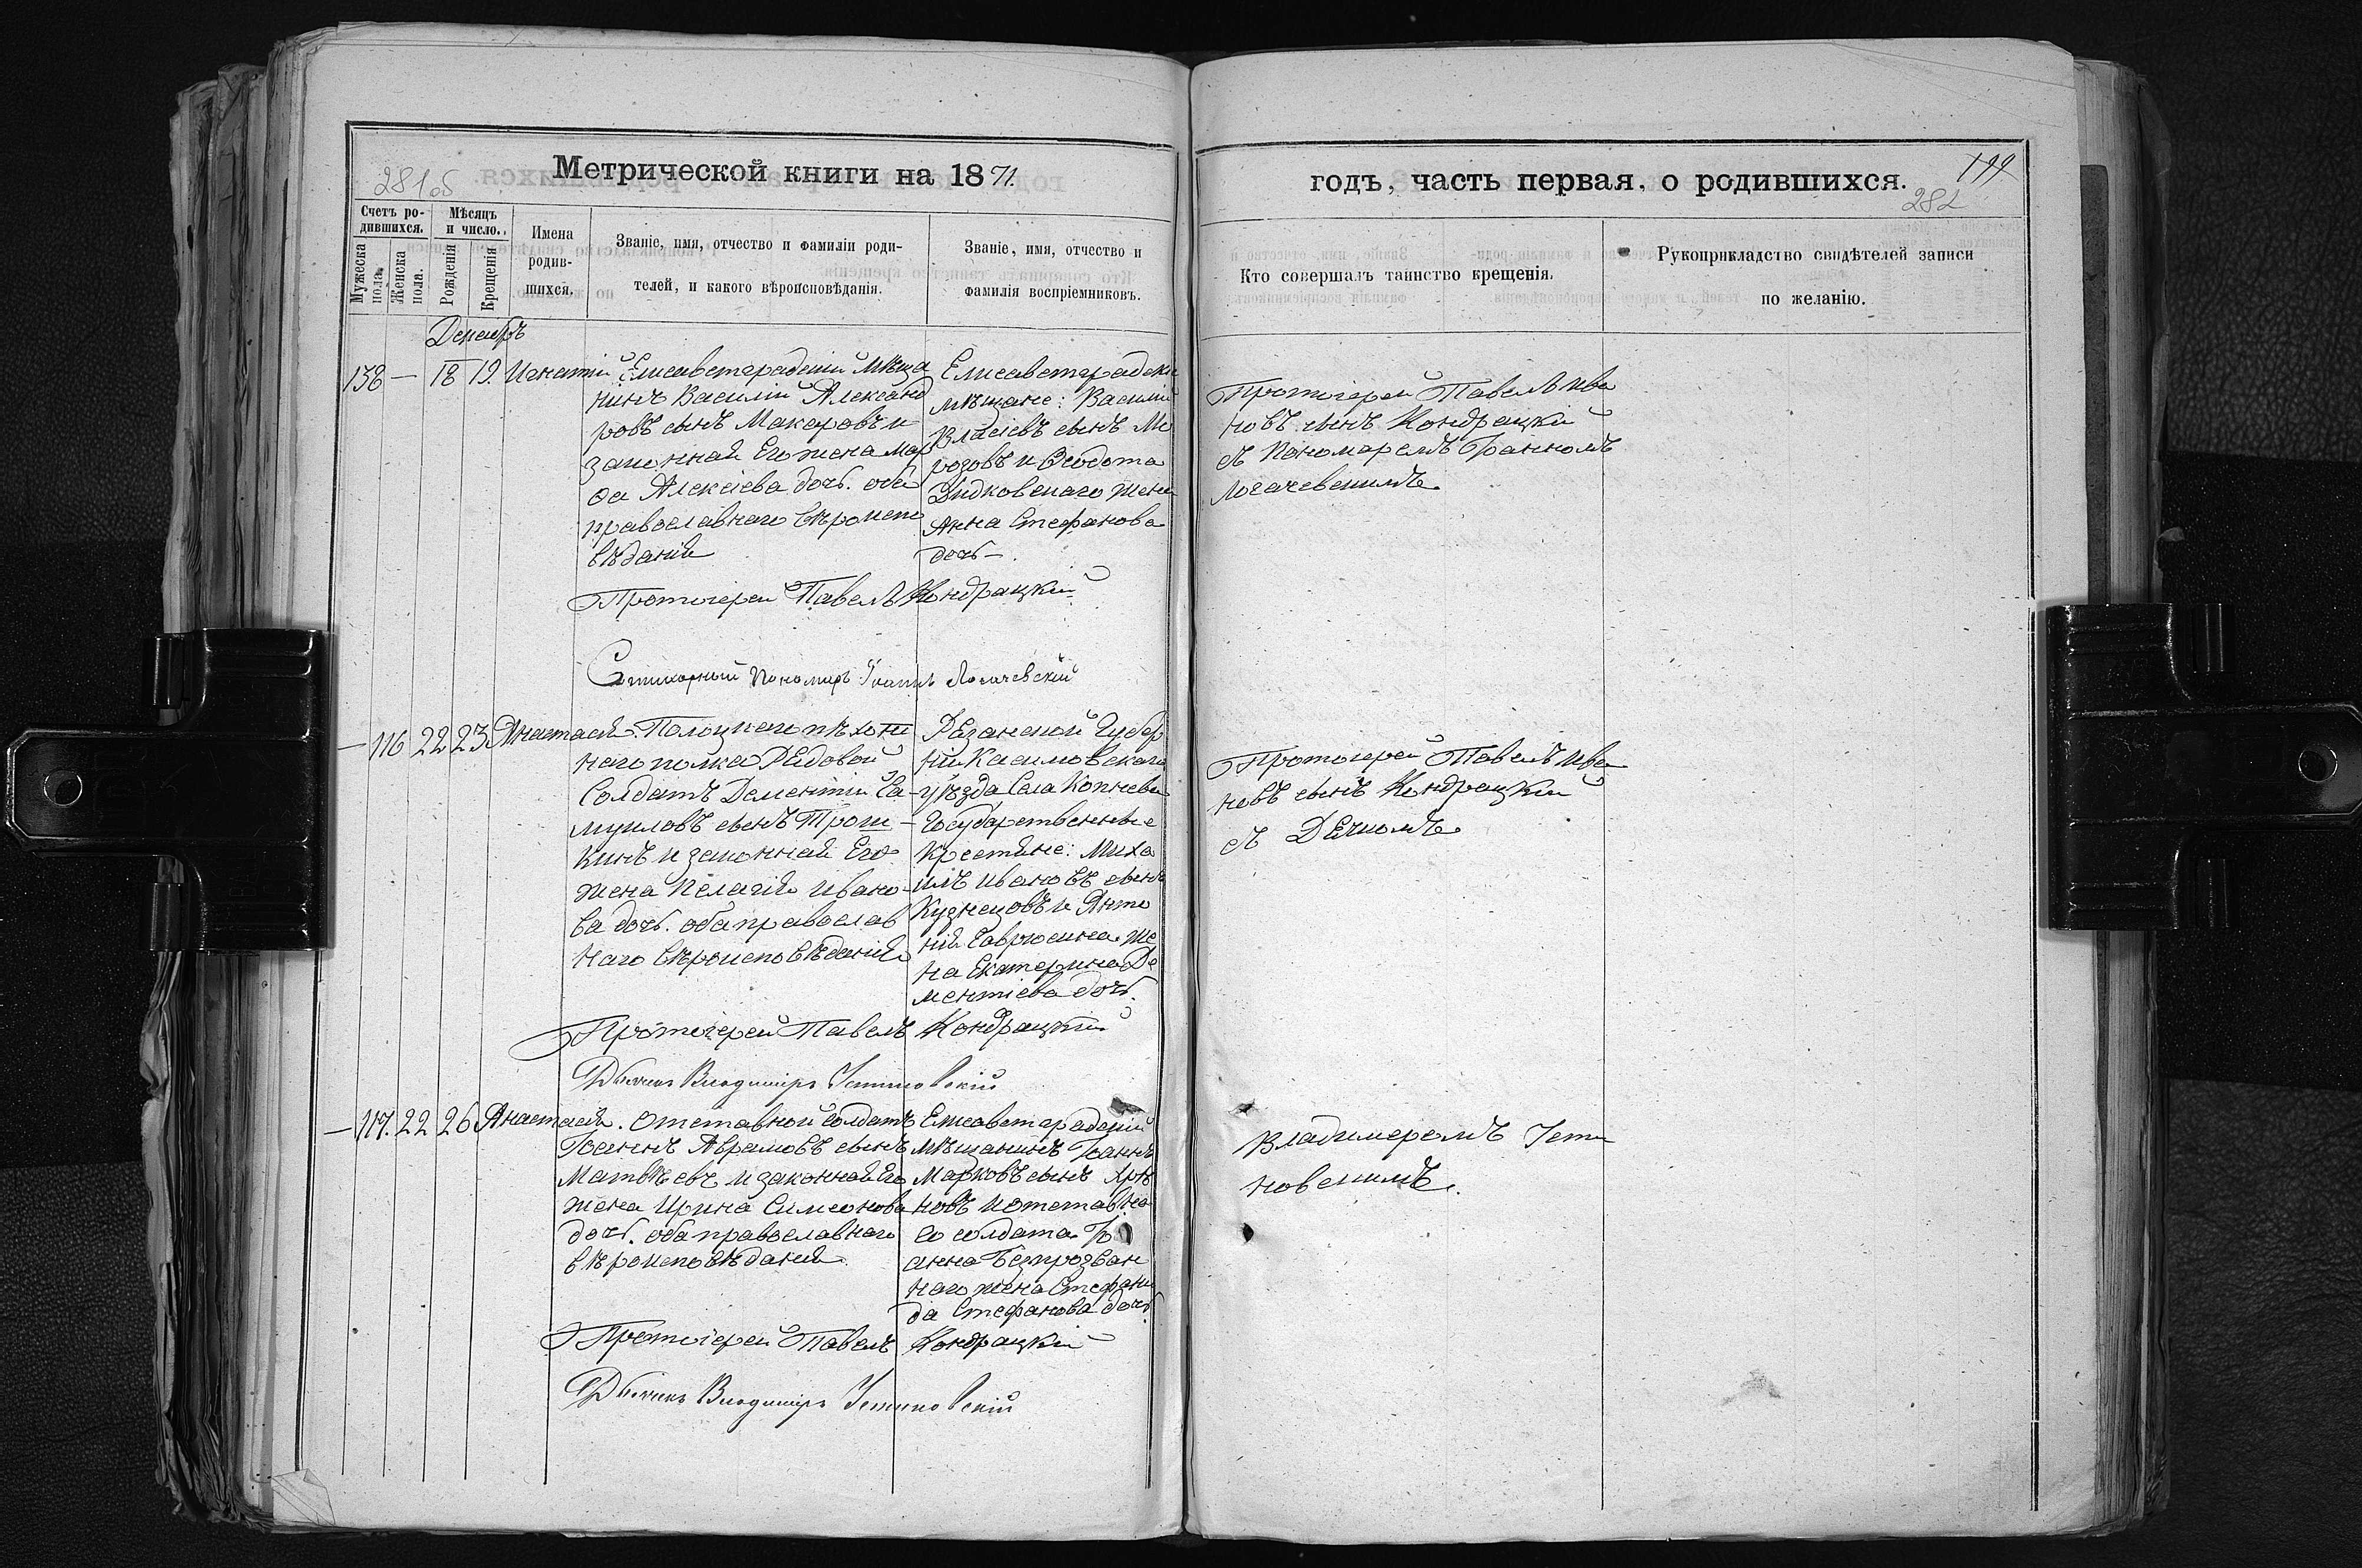 281об
Метрической книги на 1871.
Счетъ ро-
дившихся.
Мужеска
пола.
Женска
пола.
Мѣсяцъ
и число.
Рожденія
Крещенія
Имена
родив-
шихся.
Званіе, имя, отчество и фамиліи роди-
телей, и какого вѣроисповѣданія.
Званіе, имя, отчество и
фамилія воспріемниковъ.
Декабрь
138 — 18 19. Игнатій
Елисаветградскій мѣща
нинъ Василій Александ
ровъ сынъ Макаровъ и
законная Его жена Мар
ѳа Алексіева дочь. оба
православнаго вѣроиспо
вѣданія
Елисаветградскіе
мѣщане: Василій
Власіевъ сынъ Мо
розовъ и Ѳеодота
Дидковскаго жена
Анна Стефанова
дочь—.
Протоіерей Павелъ Кондрацкій
Стихарный Пономарь Іоаннъ Логачевскій
— 116 22 23 Анастасія.
Полоцкаго пѣхот
наго полка Рядовой
Солдатъ Дементій Са-
муиловъ сынъ Трош-
кинъ и законная Его
жена Пелагія Ивано-
ва дочь. оба православ
наго вѣроисповѣданія
Рязанской Губер
ніи Касимовскаго
уѣзда Села Копнева
Государственные
Крестяне: Миха
илъ Ивановъ сынъ
Кузнецовъ и Анто
нія Гаврюшина же
на Екатерина Де
ментіева дочь.
Протоіерей Павелъ Кондрацкій
Дьячекъ Владиміръ Устиновскій
— 117. 22 26 Анастасія.
Отставной солдатъ
Іоаннъ Аврамовъ сынъ
Матвѣевъ и законная Его
жена Ирина Симеонова
дочь. оба православнаго
вѣроисповѣданія.
Елисаветградскій
мѣщанинъ Іоаннъ
Марковъ сынъ Хрѣ
новъ и отставна
го солдата Іо
анна Безпрозван
наго жена Стефани
да Стефанова дочь.
Протоіерей Павелъ Кондрацкій
Дьячекъ Владиміръ Устиновскій
годъ, часть первая, о родившихся.
199
282
Кто совершалъ таинство крещенія.
Рукоприкладство свидѣтелей записи
по желанію.
Протоіерей Павелъ Ива
новъ сынъ Кондрацкій
съ Пономаремъ Іоанномъ
Логачевскимъ.
Протоіерей Павелъ Ива
новъ сынъ Кондрацкій
съ Дячкомъ
Владимеромъ Усти
новскимъ.